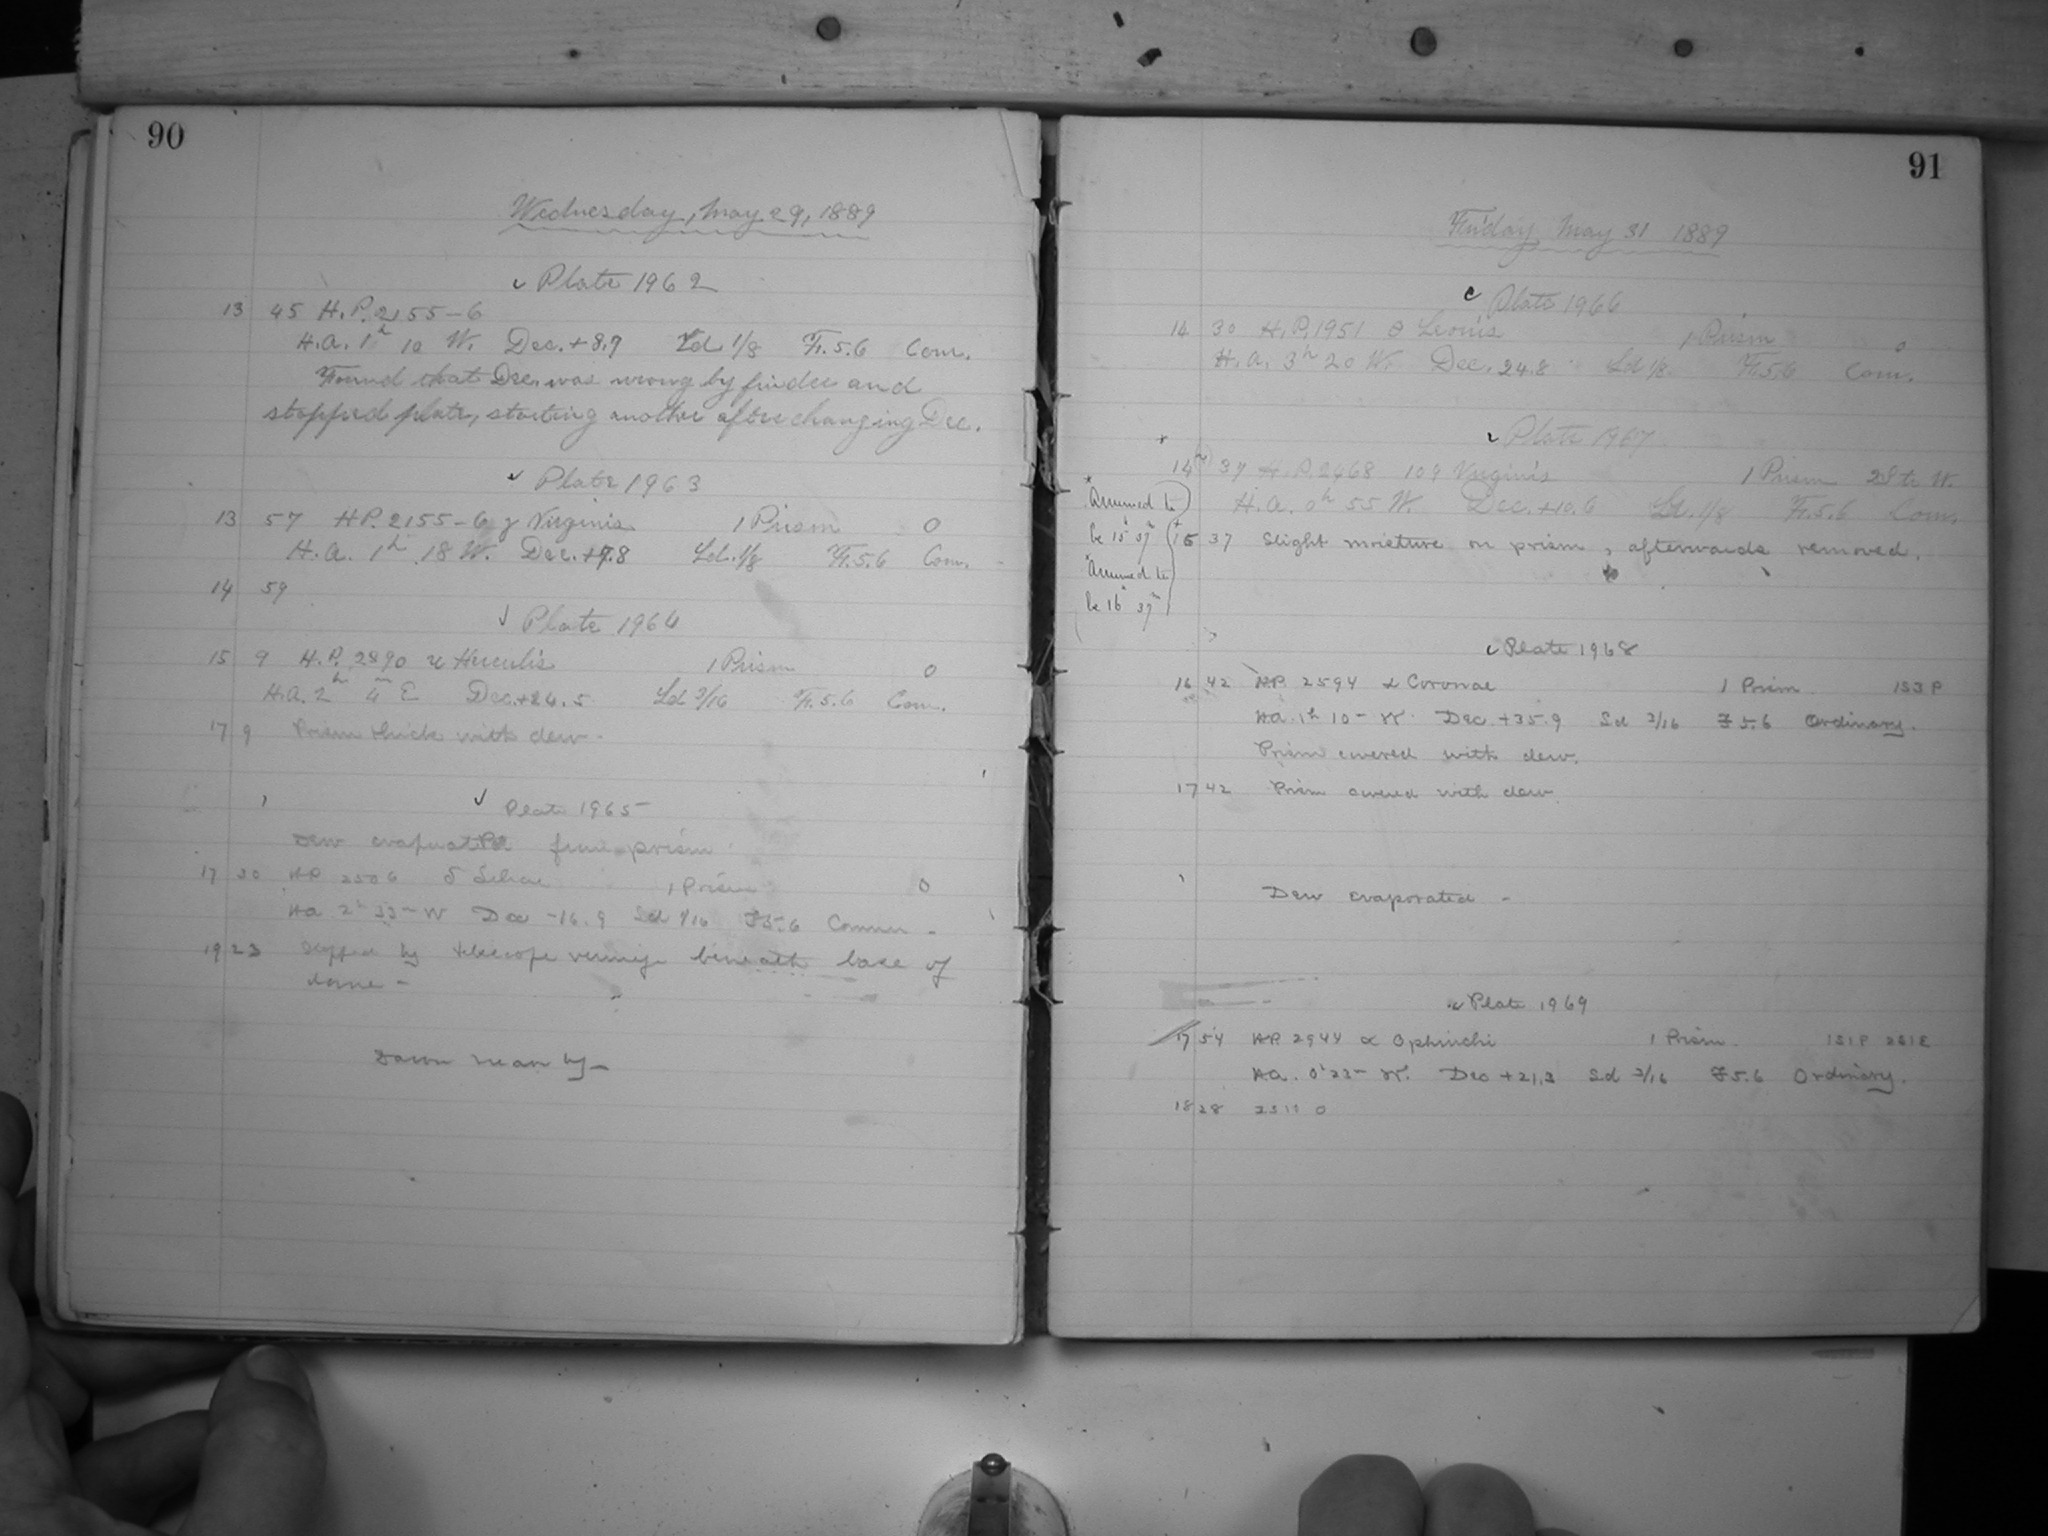 90
Wednesday, May 29, 1889
✓ Plate 1962
13 45 H.P. 2155-6
H.A. 1h 10 W. Dec. +8.9 Ld 1/8 Fr. 5.6 Com.
Found that Dec. was wrong by finder and
stopped plate, starting another after changing Dec.
✓ Plate 1963
13 57 H.P. 2155-6 γ Virginis 1 Prism 0
H.A. 1h 18 W. Dec. +7.8 Ld. 1/8 Fr. 5.6 Com.
14 59
✓ Plate 1964
15 9 H.P. 2890 u Herculis 1 Prism 0
H.A. 2h 4m E Dec. +24.5 Ld 3/16 Fr. 5.6 Com.
17 9 Prism thick with dew.
✓ Plate 1965
Dew evaporated from prism
17 30 HP 2506 δ Librae 1 Prism 0
HA 2h 33m W Dec -16.9 Sd 1/16 F5.6 Common -
19 23 Stopped by telescope beneath base of
dome -
Dawn near by -
91
Friday May 31 1889
Plate 1966
14 30 H.P. 1951 θ Leonis 1 Prism 0
H.A. 3h 20 W. Dec. 24.8 Ld 1/8 Fr. 5.6 Com.
✓ Plate 1967
* 14 37 H.P. 2468 109 Virginis 1 Prism W.
H.A. 0h 55 W. Dec. +10.6 1/8 Fr. 5.6 Com.
* Assumed to
be 15h 37m
15 37 Slight moisture on prism, afterwards removed.
* Assumed to
be 16h 37m
✓ Plate 1968
16 42 HP. 2594 α Coronae 1 Prism 1S3P
HA. 1h 10m W. Dec. +35.9 Sd 3/16 F5.6 Ordinary.
Prism covered with dew.
17 42 Prism covered with dew
Dew evaporated -
✓ Plate 1969
17 54 HP. 2944 α Ophiuchi 1 Prism. 1S1P 2S1E
HA. 0h 23m W. Dec +21.3 Sd 3/16 F5.6 Ordinary.
18 28